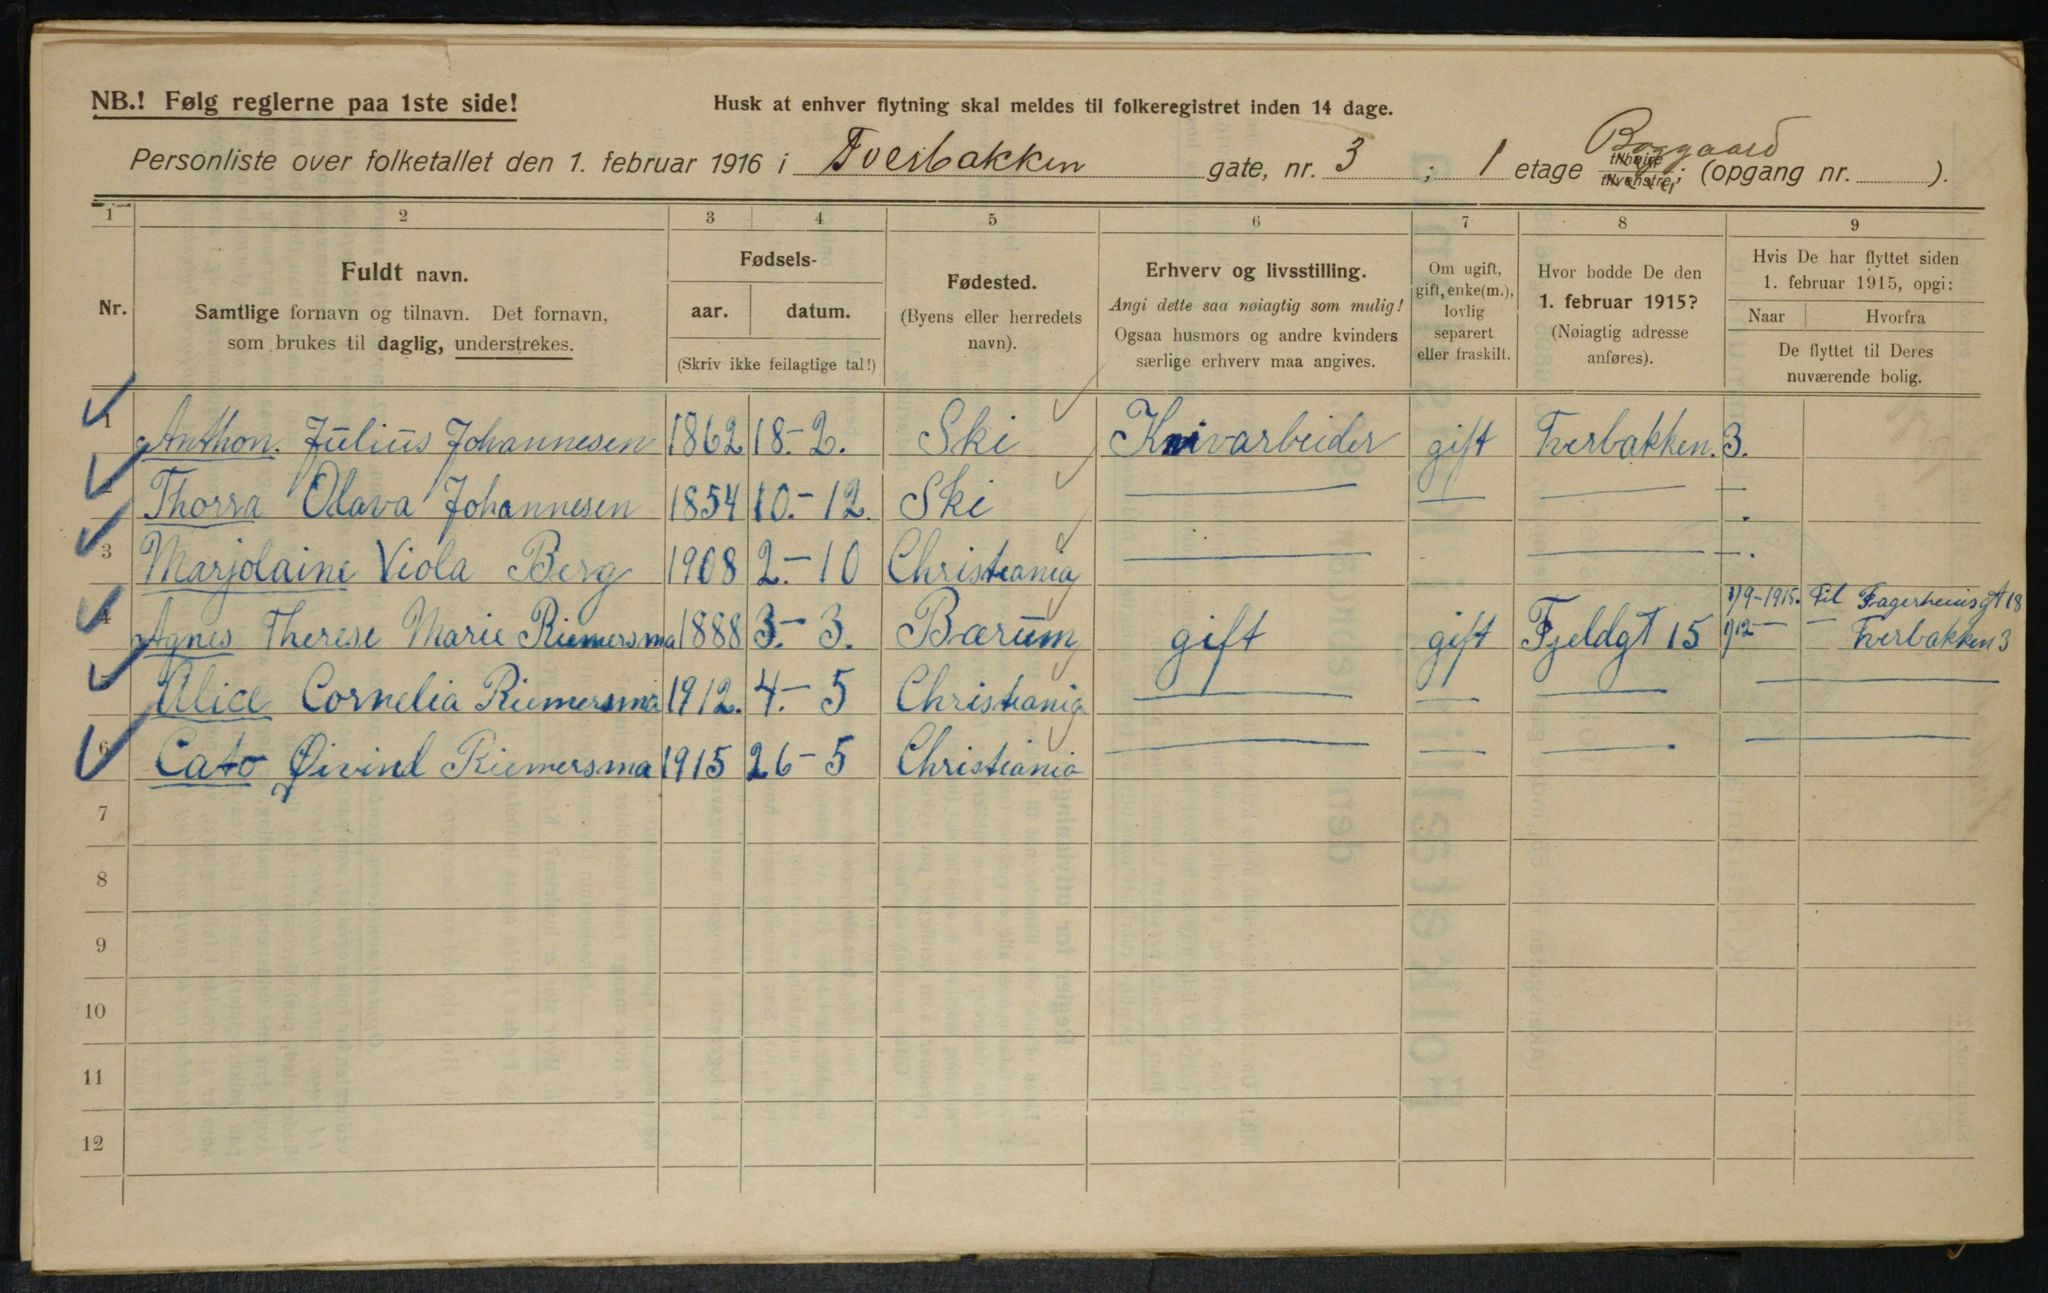 NB.! Følg reglerne paa 1ste side!
Husk at enhver flytning skal meldes til folkeregistret inden 14 dage.
Personliste over folketallet den 1. februar 1916 i Tverbakken gate, nr. 3 ; 1 etage tilhøire tilvenstre; Baggaard (opgang nr. ).
1 2 3 4 5 6 7 8 9
Nr.
Fuldt navn.
Samtlige fornavn og tilnavn. Det fornavn,
som brukes til daglig, understrekes.
Fødsels-
aar. datum.
(Skriv ikke feilagtige tal!)
Fødested.
(Byens eller herredets
navn).
Erhverv og livsstilling.
Angi dette saa nøiagtig som mulig!
Ogsaa husmors og andre kvinders
særlige erhverv maa angives.
Om ugift,
gift, enke(m.),
lovlig
separert
eller fraskilt.
Hvor bodde De den
1. februar 1915?
(Nøiagtig adresse
anføres).
Hvis De har flyttet siden
1. februar 1915, opgi:
Naar Hvorfra
De flyttet til Deres
nuværende bolig.
1 Anthon. Julius Johannesen 1862 18.-2. Ski Knivarbeider gift Tverbakken. 3.
Thorra Olava Johannesen 1854 10.-12. Ski — — — —.
3 Marjolaine Viola Berg 1908 2.-10 Christiania — — —.
1/9-1915. Til Fagerheimsgt 18
4 Agnes Therese Marie Riemersma 1888 3.-3. Bærum gift gift Fjeldgt 15 1/12 — — Tverbakken 3
5 Alice Cornelia Riemersma 1912. 4.-5 Christiania — — — —
6 Cato Øivind Riemersma 1915 26-5 Christiania — — — —
7
8
9
10
11
12